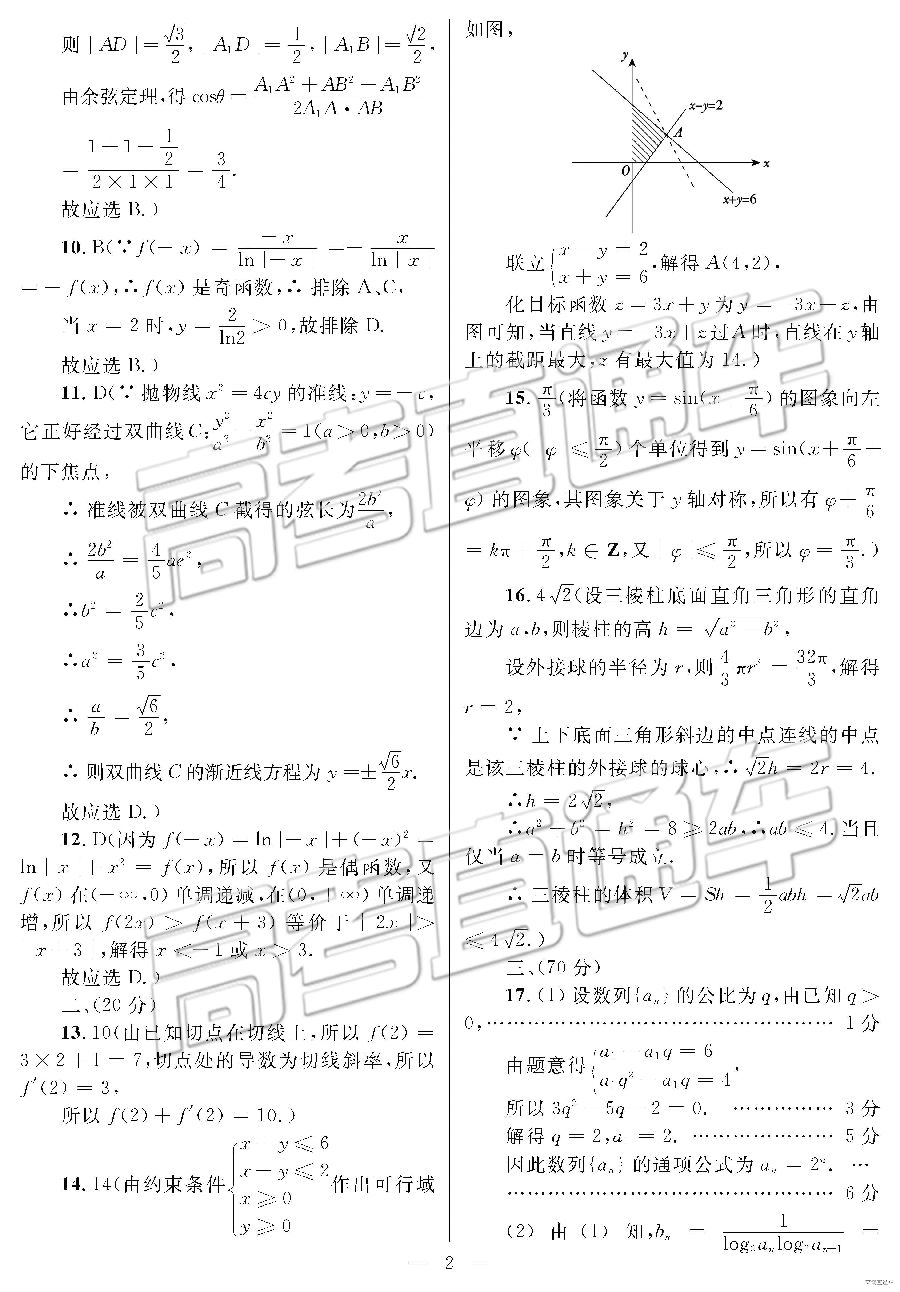 则|AD|=√3/2, A₁D =1/2,|A₁B|=√2/2.
由余弦定理,得 cosθ=(A₁A²+AB²−A₁B²)/(2A₁A·AB)
=(1+1−1/2)/(2×1×1)=3/4.
故应选 B.)
10.B(∵f(−x)=−x/ln|−x|=−x/ln|x|
=−f(x),∴f(x)是奇函数,∴排除 A、C,
当 x=2 时,y=2/ln2>0,故排除 D.
故应选 B.)
11.D(∵抛物线 x²=4cy 的准线:y=−c,
它正好经过双曲线 C:y²/a²−x²/b²=1(a>0,b>0)
的下焦点,
∴准线被双曲线 C 截得的弦长为2b²/a,
∴2b²/a=4/5ae²,
∴b²=2/5c²,
∴a²=3/5c².
∴a/b=√6/2,
∴则双曲线 C 的渐近线方程为 y=±√6/2x.
故应选 D.)
12.D(因为 f(−x)=ln|−x|+(−x)²=
ln|x|+x²=f(x),所以 f(x)是偶函数,又
f(x)在(−∞,0)单调递减,在(0,+∞)单调递
增,所以 f(2x)>f(x+3)等价于|2x|>
|x+3|,解得 x<−1 或 x>3.
故应选 D.)
二、(20 分)
13.10(由已知切点在切线上,所以 f(2)=
3×2+1=7,切点处的导数为切线斜率,所以
f′(2)=3,
所以 f(2)+f′(2)=10.)
14.14(由约束条件{x+y≤6
x−y≤2
x≥0
y≥0 作出可行域
如图,
y
x−y=2
A
O
x
x+y=6
联立{x−y=2
x+y=6,解得 A(4,2),
化目标函数 z=3x+y 为 y=−3x+z,由
图可知,当直线 y=−3x+z过A时,直线在y轴
上的截距最大,z 有最大值为 14.)
15.π/3(将函数 y=sin(x+π/6)的图象向左
平移φ(|φ|≤π/2)个单位得到 y=sin(x+π/6+
φ)的图象,其图象关于 y 轴对称,所以有φ+π/6
=kπ+π/2,k∈Z,又|φ|≤π/2,所以 φ=π/3.)
16.4√2(设三棱柱底面直角三角形的直角
边为 a,b,则棱柱的高 h=√(a²+b²),
设外接球的半径为 r,则4/3πr³=32π/3,解得
r=2,
∵上下底面三角形斜边的中点连线的中点
是该三棱柱的外接球的球心,∴√2h=2r=4.
∴h=2√2,
∴a²+b²=h²=8≥2ab,∴ab≤4.当且
仅当 a=b 时等号成立.
∴三棱柱的体积 V=Sh=1/2abh=√2ab
≤4√2.)
三、(70 分)
17.(1)设数列{aₙ}的公比为q,由已知q>
0,…………………………………………… 1 分
由题意得{a₁+a₁q=6
a₁q²+a₁q=4,
所以 3q²−5q−2=0. …………… 3 分
解得 q=2,a₁=2. ………………… 5 分
因此数列{aₙ}的通项公式为 aₙ=2ⁿ. …
…………………………………………… 6 分
(2) 由 (1) 知,bₙ=1/(log₂aₙlog₂aₙ₊₁)=
— 2 —
高考直通车
高考直通车